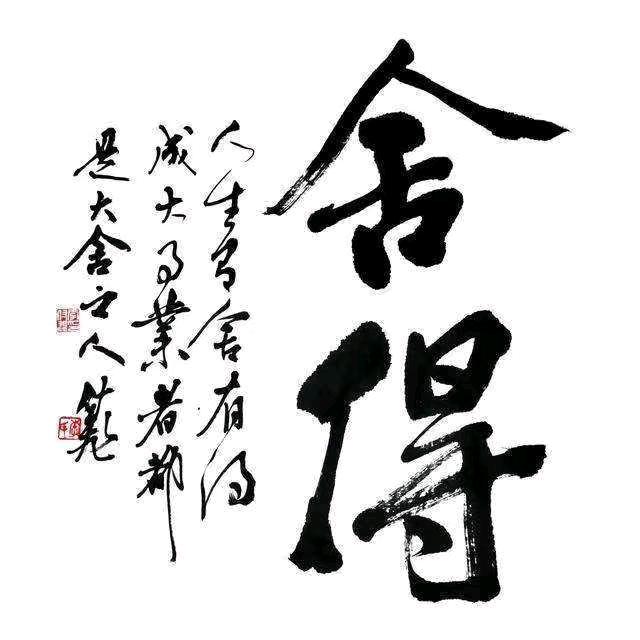 舍得
人生有舍有得
成大事業者都
是大舍之人